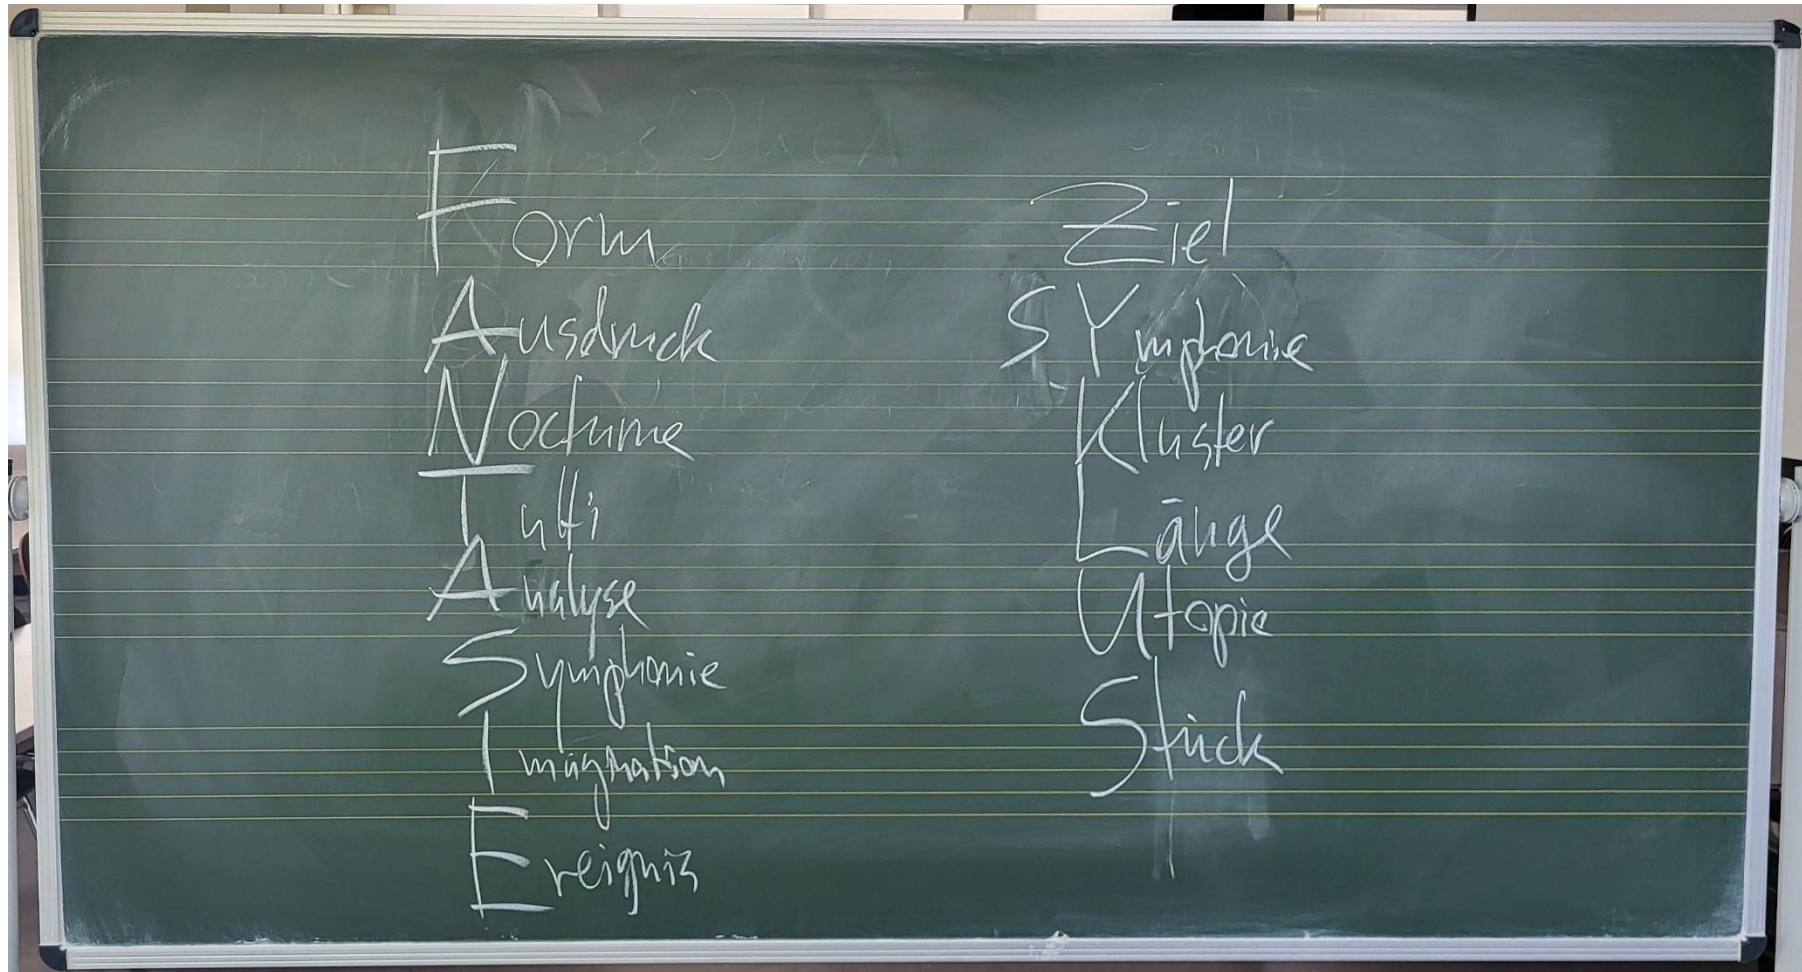 Form
Ausdruck
Nocturne
Tutti
Analyse
Symphonie
Imagination
Ereignis
Ziel
SYmphonie
Kluster
Länge
Utopie
Stück